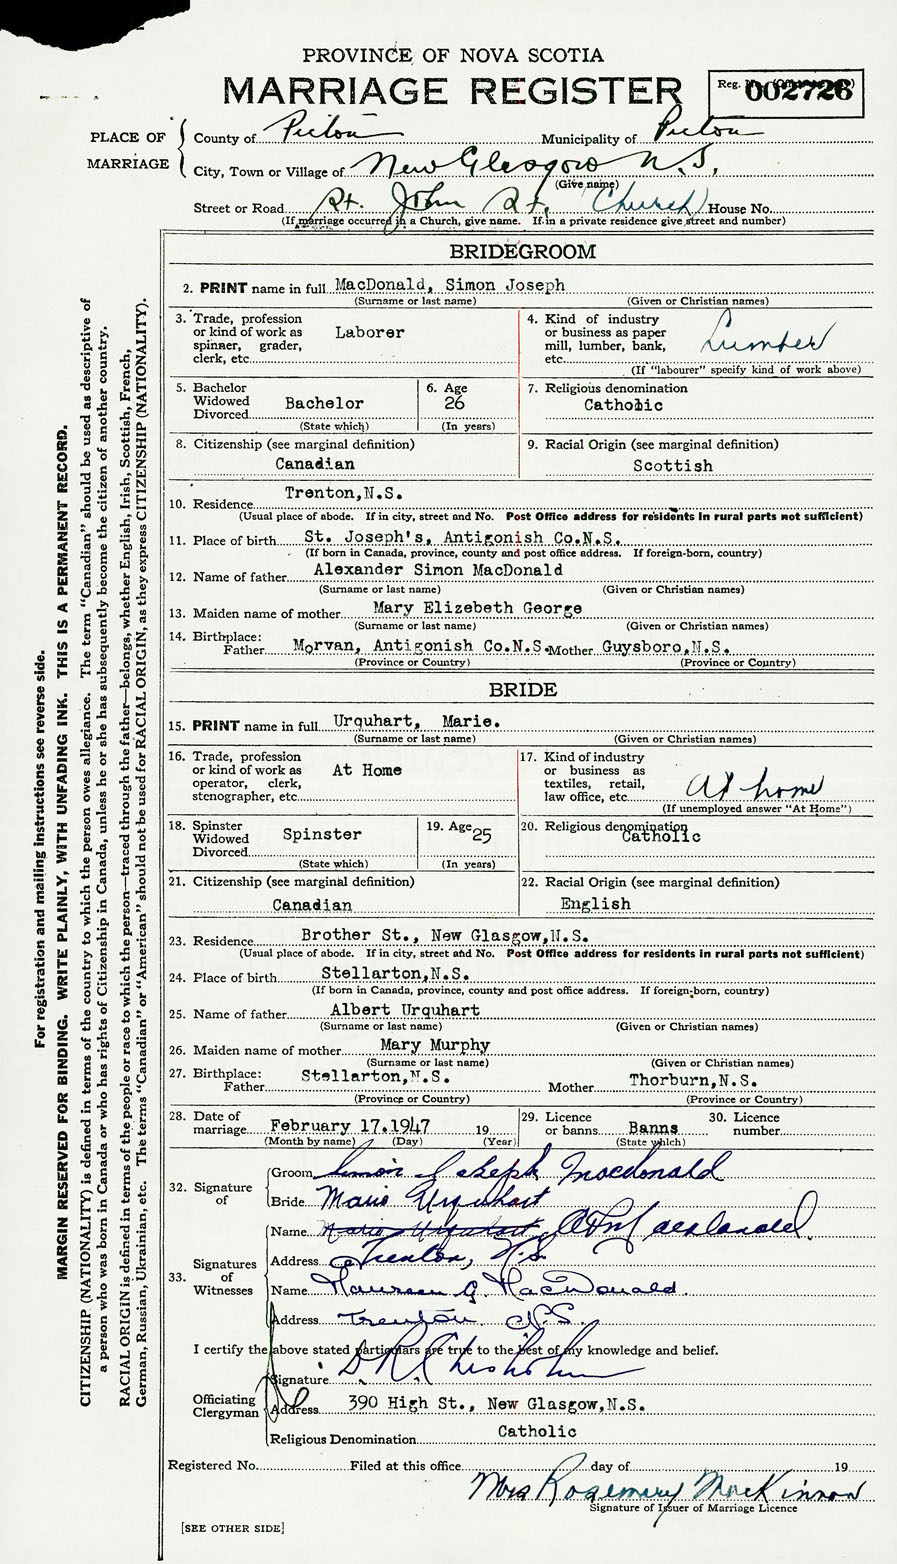 PROVINCE OF NOVA SCOTIA
MARRIAGE REGISTER
Reg. No. 002726
PLACE OF MARRIAGE
County of Pictou Municipality of Pictou
City, Town or Village of New Glasgow N.S.
(Give name)
Street or Road St. John St. (Church) House No.
(If marriage occurred in a Church, give name. If in a private residence give street and number)
BRIDEGROOM
2. PRINT name in full MacDonald, Simon Joseph
(Surname or last name) (Given or Christian names)
3. Trade, profession or kind of work as spinner, grader, clerk, etc. Laborer
4. Kind of industry or business as paper mill, lumber, bank, etc. Lumber
(If "labourer" specify kind of work above)
5. Bachelor Widowed Divorced Bachelor
(State which)
6. Age 26
(In years)
7. Religious denomination
Catholic
8. Citizenship (see marginal definition)
Canadian
9. Racial Origin (see marginal definition)
Scottish
10. Residence Trenton,N.S.
(Usual place of abode. If in city, street and No. Post Office address for residents in rural parts not sufficient)
11. Place of birth St. Joseph's, Antigonish Co.N.S.
(If born in Canada, province, county and post office address. If foreign-born, country)
12. Name of father Alexander Simon MacDonald
(Surname or last name) (Given or Christian names)
13. Maiden name of mother Mary Elizebeth George
(Surname or last name) (Given or Christian names)
14. Birthplace: Father Morvan, Antigonish Co.N.S. Mother Guysboro,N.S.
(Province or Country) (Province or Country)
BRIDE
15. PRINT name in full Urquhart, Marie.
(Surname or last name) (Given or Christian names)
16. Trade, profession or kind of work as operator, clerk, stenographer, etc. At Home
17. Kind of industry or business as textiles, retail, law office, etc. At home
(If unemployed answer "At Home")
18. Spinster Widowed Divorced Spinster
(State which)
19. Age 25
(In years)
20. Religious denomination
Catholic
21. Citizenship (see marginal definition)
Canadian
22. Racial Origin (see marginal definition)
English
23. Residence Brother St., New Glasgow,N.S.
(Usual place of abode. If in city, street and No. Post Office address for residents in rural parts not sufficient)
24. Place of birth Stellarton,N.S.
(If born in Canada, province, county and post office address. If foreign-born, country)
25. Name of father Albert Urquhart
(Surname or last name) (Given or Christian names)
26. Maiden name of mother Mary Murphy
(Surname or last name) (Given or Christian names)
27. Birthplace: Father Stellarton,N.S. Mother Thorburn,N.S.
(Province or Country) (Province or Country)
28. Date of marriage February 17.1947 19
(Month by name) (Day) (Year)
29. Licence or banns Banns
(State which)
30. Licence number
32. Signature of
Groom Simon Joseph Macdonald
Bride Marie Urquhart
33. Signatures of Witnesses
Name Marie Urquhart Macdonald
Address Trenton, N.S.
Name Maureen G. MacDonald
Address Trenton N.S.
I certify the above stated particulars are true to the best of my knowledge and belief.
Officiating Clergyman
Signature D R Chisholm
Address 390 High St., New Glasgow,N.S.
Religious Denomination Catholic
Registered No. Filed at this office day of 19
Mrs Rosemary MacKinnon
Signature of Issuer of Marriage Licence
[SEE OTHER SIDE]
For registration and mailing instructions see reverse side.
MARGIN RESERVED FOR BINDING. WRITE PLAINLY, WITH UNFADING INK. THIS IS A PERMANENT RECORD.
CITIZENSHIP (NATIONALITY) is defined in terms of the country to which the person owes allegiance. The term "Canadian" should be used as descriptive of
a person who was born in Canada or who has rights of Citizenship in Canada, unless he or she has subsequently become the citizen of another country.
RACIAL ORIGIN is defined in terms of the people or race to which the person—traced through the father—belongs, whether English, Irish, Scottish, French,
German, Russian, Ukrainian, etc. The terms "Canadian" or "American" should not be used for RACIAL ORIGIN, as they express CITIZENSHIP (NATIONALITY).